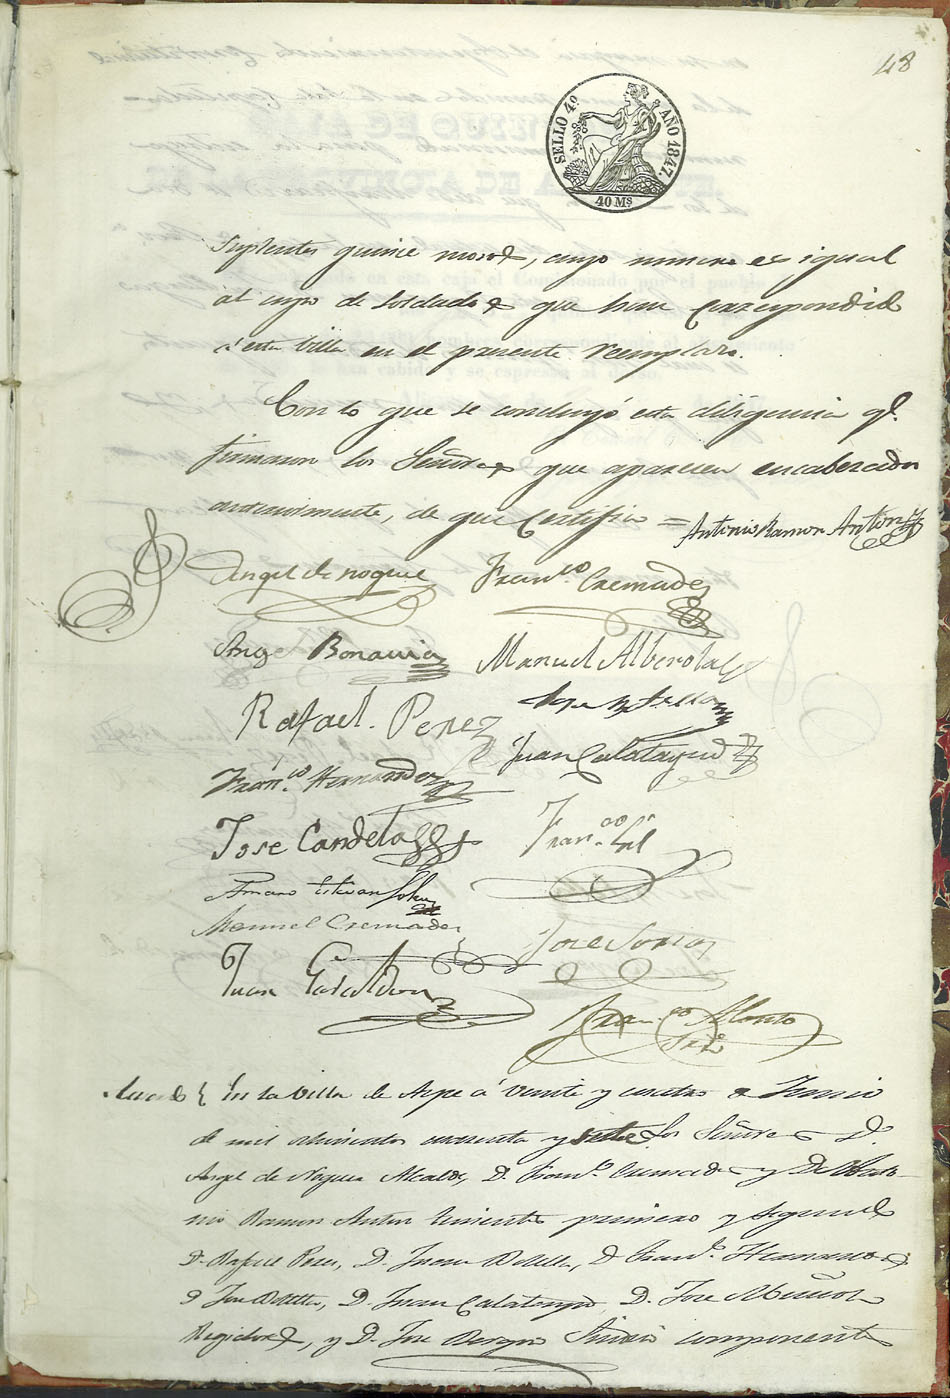 48
SELLO 4º AÑO 1847.
40 Ms
Suplentes quince mozos, cuyo numero es igual
al cupo de Soldados que han correspondido
á esta Villa en el presente reemplazo.
Con lo que se concluyó esta diligencia qe.
firmaron los Señores que aparecen encabezados
anteriormente, de que certifico = Antonio Ramon Anton
Angel de Noguera Franco Cremades
Angel Bonavia Manuel Alberola
Rafael Perez Jose Botella
Juan Calatayud
Franco Hernandez
Jose Candela Franco Gil
Amaro Estevan
Manuel Cremades
Jose
Juan
Franco Alonso
Acuerdo { En la Villa de Aspe á veinte y cuatro de Junio
de mil ochocientos cuarenta y siete Los Señores D.
Angel de Noguera Alcalde, D. Franco Cremades y D. Anto-
nio Ramon Anton teniente primero y segundo
D. Rafael Perez, D. Juan Botella, D. Franco Hernandez
D Jose Botella, D. Juan Calatayud, D. Jose
Regidores, y D. Jose Sindico componentes